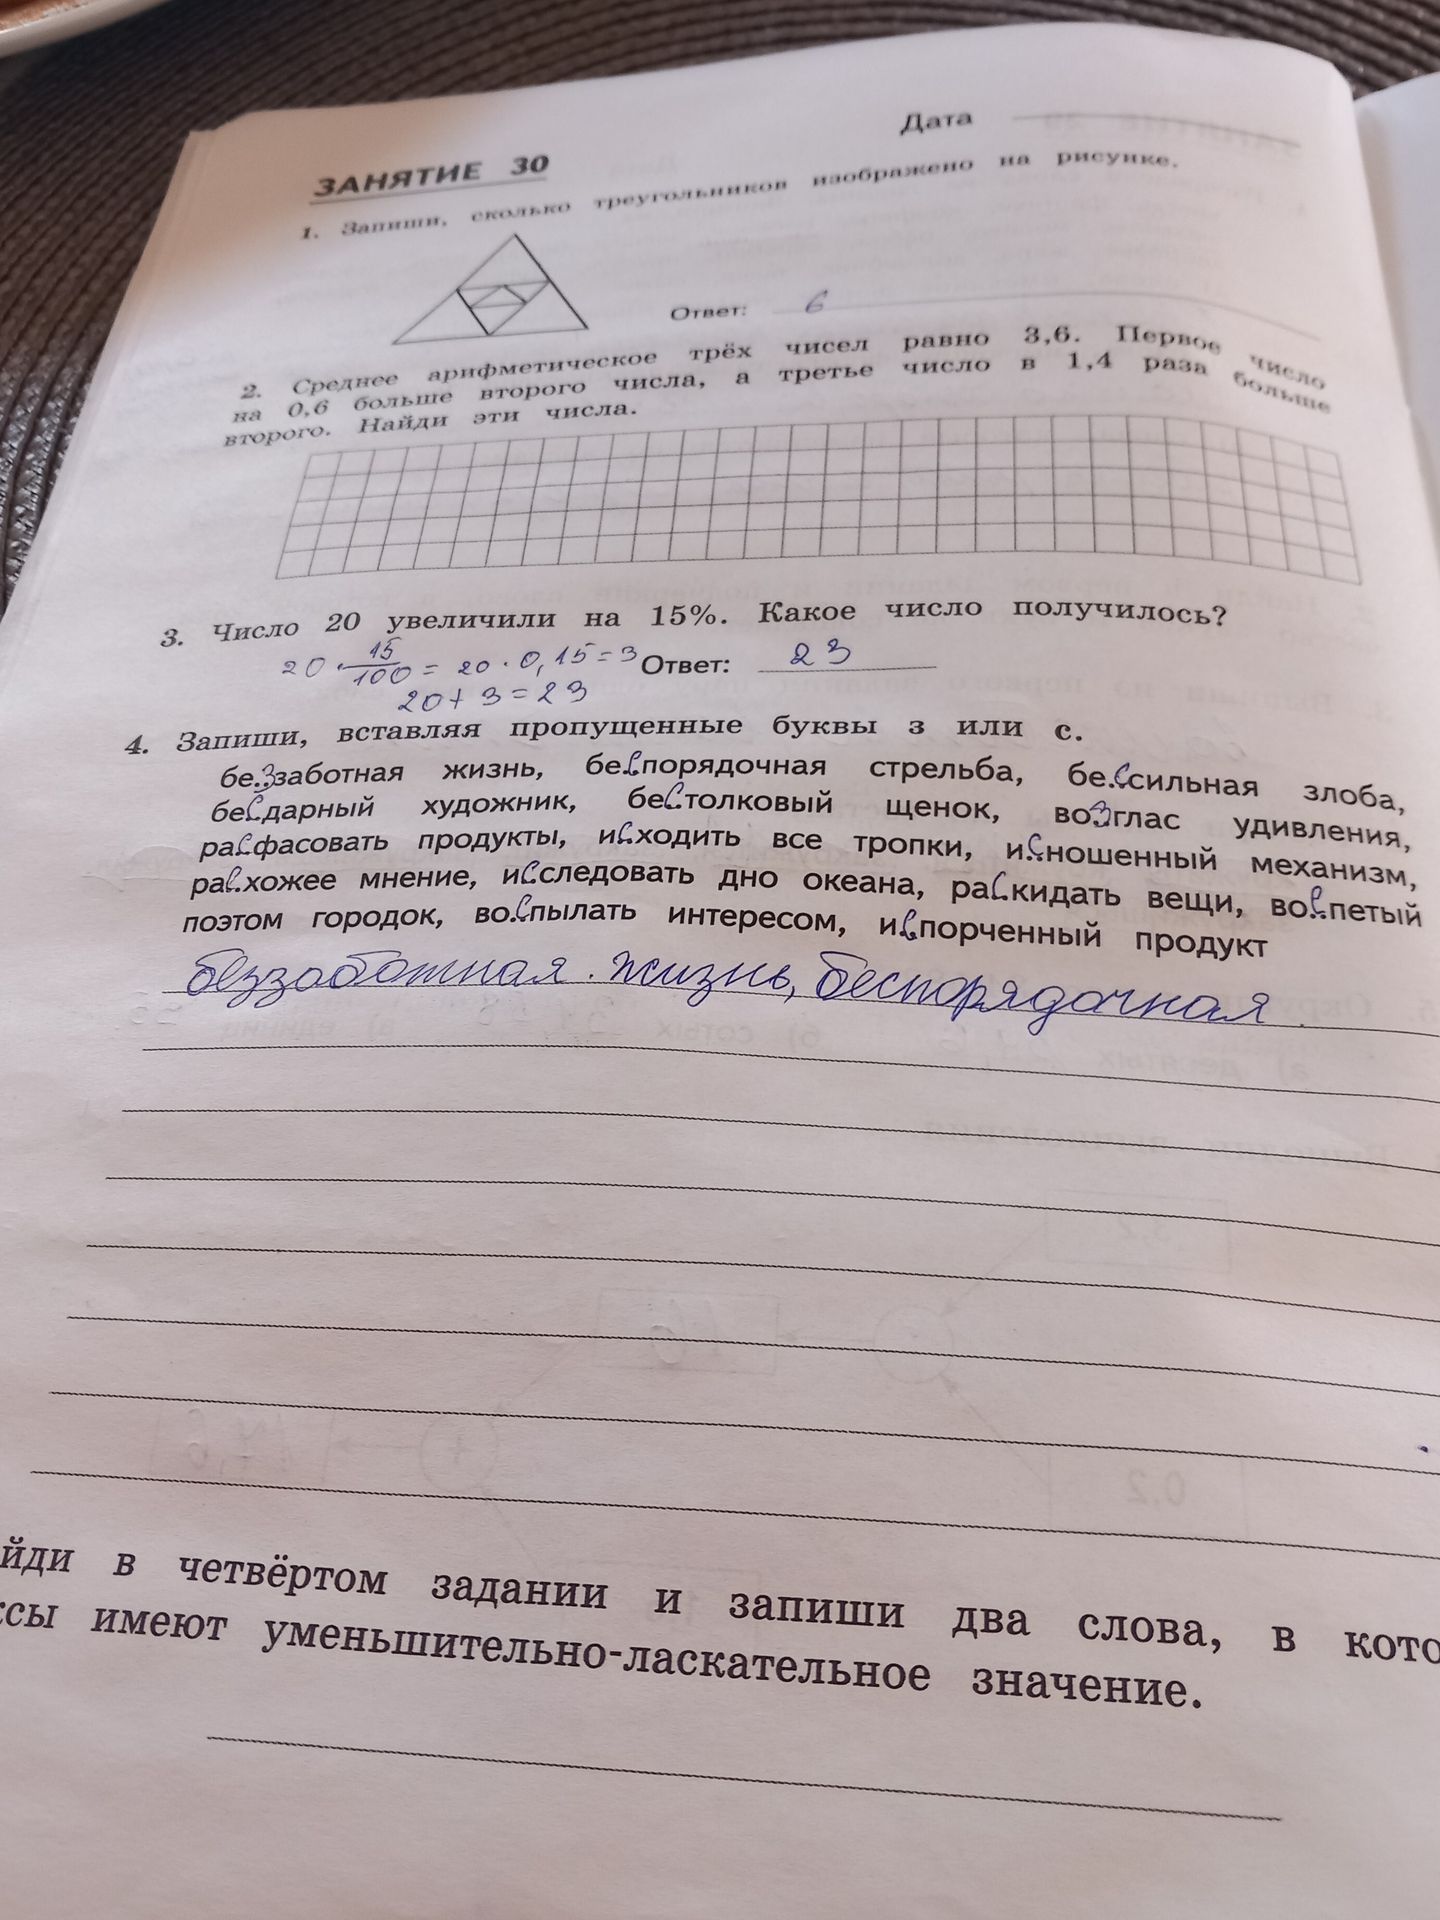 Дата
ЗАНЯТИЕ 30
1. Запиши, сколько треугольников изображено на рисунке.
Ответ: 6
2. Среднее арифметическое трёх чисел равно 3,6. Первое число
на 0,6 больше второго числа, а третье число в 1,4 раза больше
второго. Найди эти числа.
3. Число 20 увеличили на 15%. Какое число получилось?
20 · 15/100 = 20 · 0,15 = 3 Ответ: 23
20 + 3 = 23
4. Запиши, вставляя пропущенные буквы з или с.
бе.ззаботная жизнь, бе.спорядочная стрельба, бе.ссильная злоба,
бе.сдарный художник, бе.столковый щенок, во.зглас удивления,
ра.сфасовать продукты, и.сходить все тропки, и.сношенный механизм,
ра.схожее мнение, и.сследовать дно океана, ра.скидать вещи, во.спетый
поэтом городок, во.спылать интересом, и.спорченный продукт
беззаботная жизнь, беспорядочная
йди в четвёртом задании и запиши два слова, в кото
ксы имеют уменьшительно-ласкательное значение.